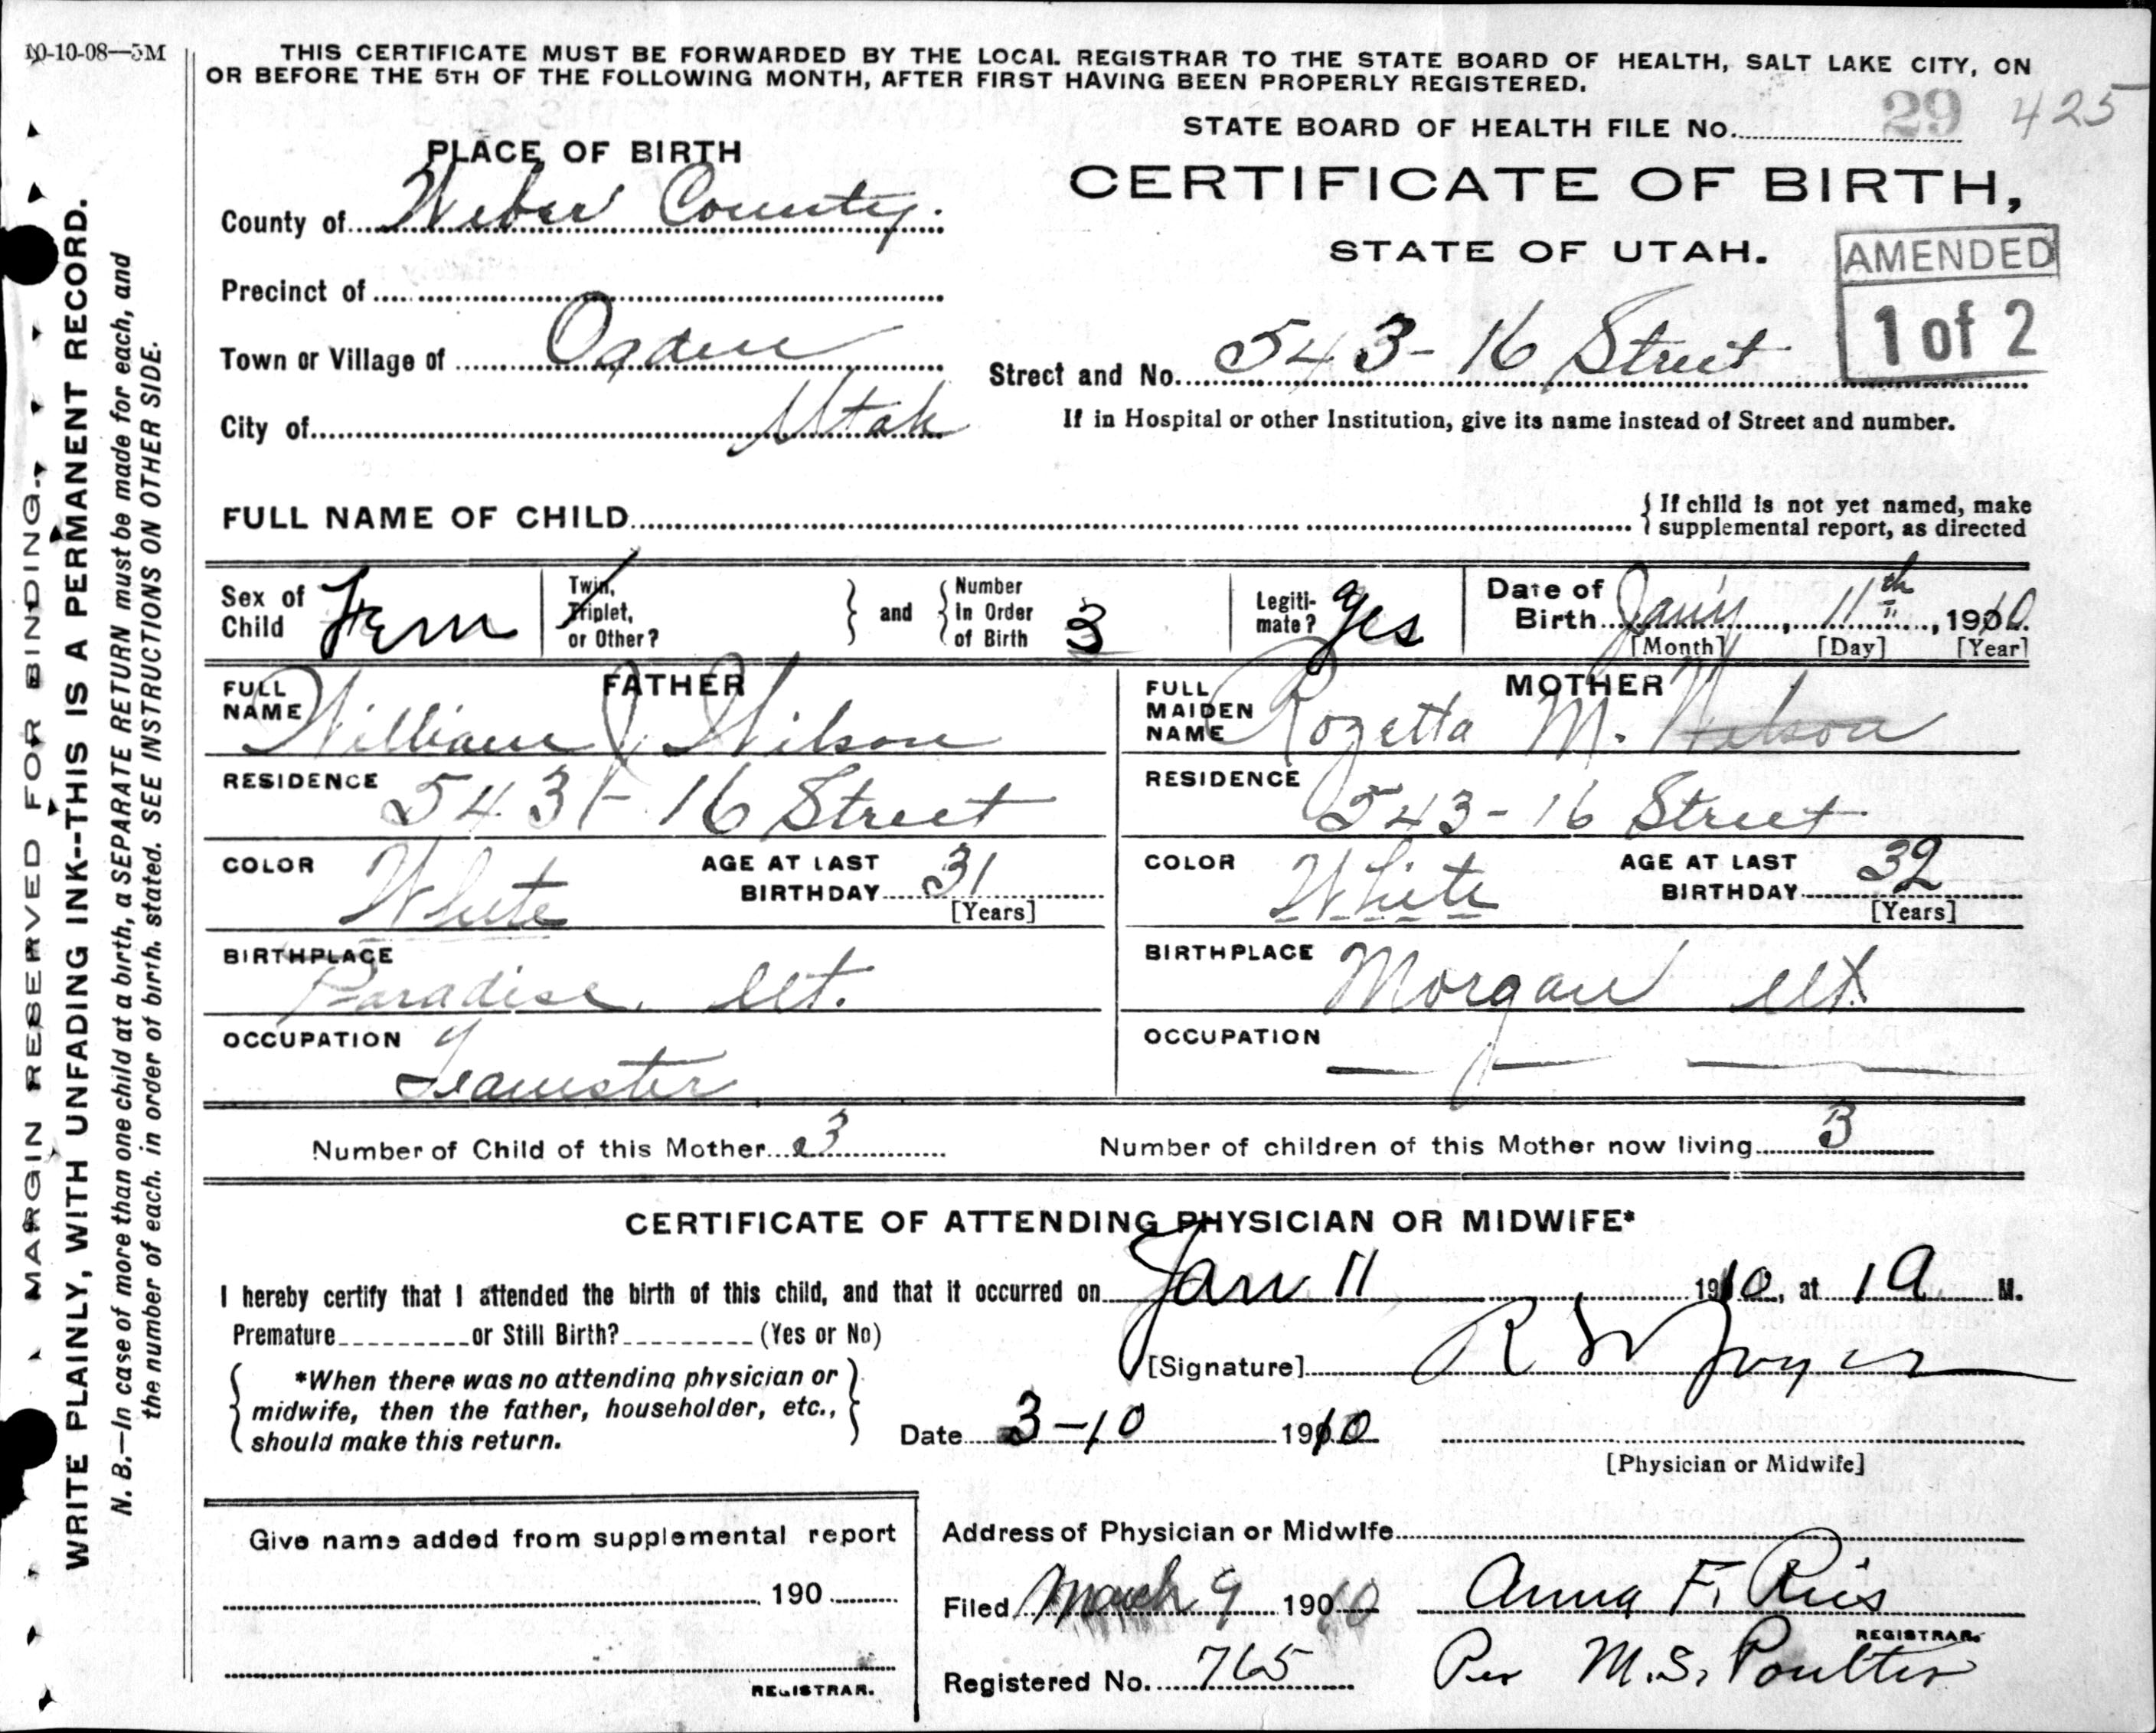 10-10-08—5M
THIS CERTIFICATE MUST BE FORWARDED BY THE LOCAL REGISTRAR TO THE STATE BOARD OF HEALTH, SALT LAKE CITY, ON
OR BEFORE THE 5TH OF THE FOLLOWING MONTH, AFTER FIRST HAVING BEEN PROPERLY REGISTERED.
STATE BOARD OF HEALTH FILE No. 29 425
PLACE OF BIRTH
CERTIFICATE OF BIRTH,
County of Weber County.
STATE OF UTAH.
AMENDED
1 of 2
Precinct of
Town or Village of Ogden
Street and No. 543-16 Street
City of Utah
If in Hospital or other Institution, give its name instead of Street and number.
FULL NAME OF CHILD
{ If child is not yet named, make
supplemental report, as directed
Sex of Child Fem
Twin, Triplet, or Other?
and
Number in Order of Birth 3
Legiti-mate? yes
Date of Birth Jan'y 11th, 1910
[Month] [Day] [Year]
FATHER
FULL NAME William J. Wilson
RESIDENCE 543 - 16 Street
COLOR White
AGE AT LAST BIRTHDAY 31
[Years]
BIRTHPLACE
Paradise, Ut.
OCCUPATION
Teamster
MOTHER
FULL MAIDEN NAME Rozetta M. Wilson
RESIDENCE
543-16 Street
COLOR White
AGE AT LAST BIRTHDAY 32
[Years]
BIRTHPLACE Morgan Ut
OCCUPATION
Number of Child of this Mother 3
Number of children of this Mother now living 3
CERTIFICATE OF ATTENDING PHYSICIAN OR MIDWIFE*
I hereby certify that I attended the birth of this child, and that it occurred on Jan 11 1910, at 1 a M.
Premature or Still Birth? (Yes or No)
[Signature] R
*When there was no attending physician or
midwife, then the father, householder, etc.,
should make this return.
Date 3-10 1910
[Physician or Midwife]
Give name added from supplemental report
190
REGISTRAR.
Address of Physician or Midwife
Filed March 9 1910 Anna F. Ries
REGISTRAR.
Registered No. 765 Per M.S. Poulter
MARGIN RESERVED FOR BINDING.
WRITE PLAINLY, WITH UNFADING INK--THIS IS A PERMANENT RECORD.
N. B.—In case of more than one child at a birth, a SEPARATE RETURN must be made for each, and
the number of each, in order of birth, stated. SEE INSTRUCTIONS ON OTHER SIDE.